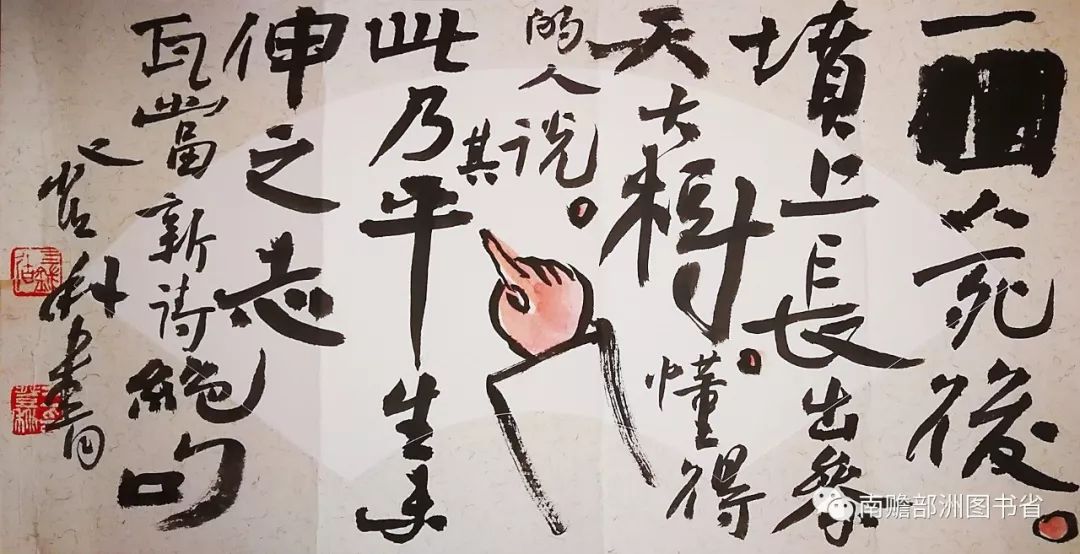 一人死後。
墳上長出參
天大樹。懂得
的人说。其
此乃平生未
伸之志
瓦當新詩絕句
書
南赡部洲图书省